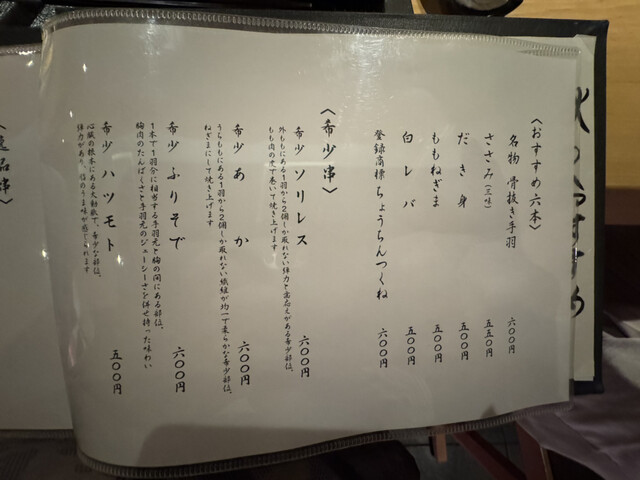 〈おすすめ六本〉
名物 骨抜き手羽 六〇〇円
ささみ(三味) 五五〇円
だき身 五〇〇円
ももねぎま 五〇〇円
白レバ 五〇〇円
登録商標 ちょうちんつくね 六〇〇円
〈希少串〉
希少 ソリレス 六〇〇円
外ももにある1羽から2個しか取れない弾力と歯応えがある希少部位。
もも肉の皮で巻いて焼き上げます
希少 あか 六〇〇円
うちももにある1羽から2個しか取れない繊維が均一で柔らかな希少部位。
ねぎまにして焼き上げます
希少 ふりそで 六〇〇円
1本で1羽分に相当する手羽元と胸の間にある部位。
胸肉のたんぱくさと手羽元のジューシーさを併せ持った味わい
希少 ハツモト 五〇〇円
心臓の根本にある大動脈で、希少な部位。
弾力があり脂のうま味が感じられます
逸品串〉